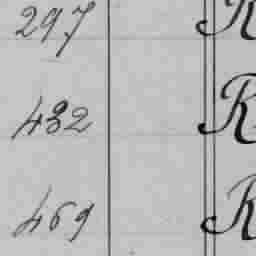 297 R
432 R
469 R